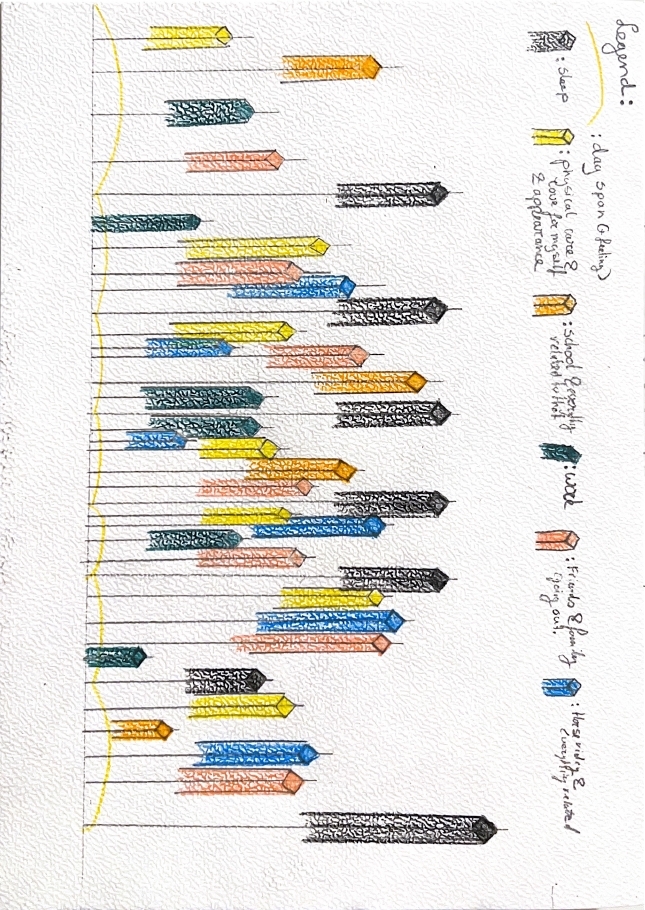 Legend:
: day span (+ feeling)
: sleep
: physical care &
love for myself
& appearance
: school & everything
related to that
: work
: Friends & family
going out.
: Horse riding &
everything related